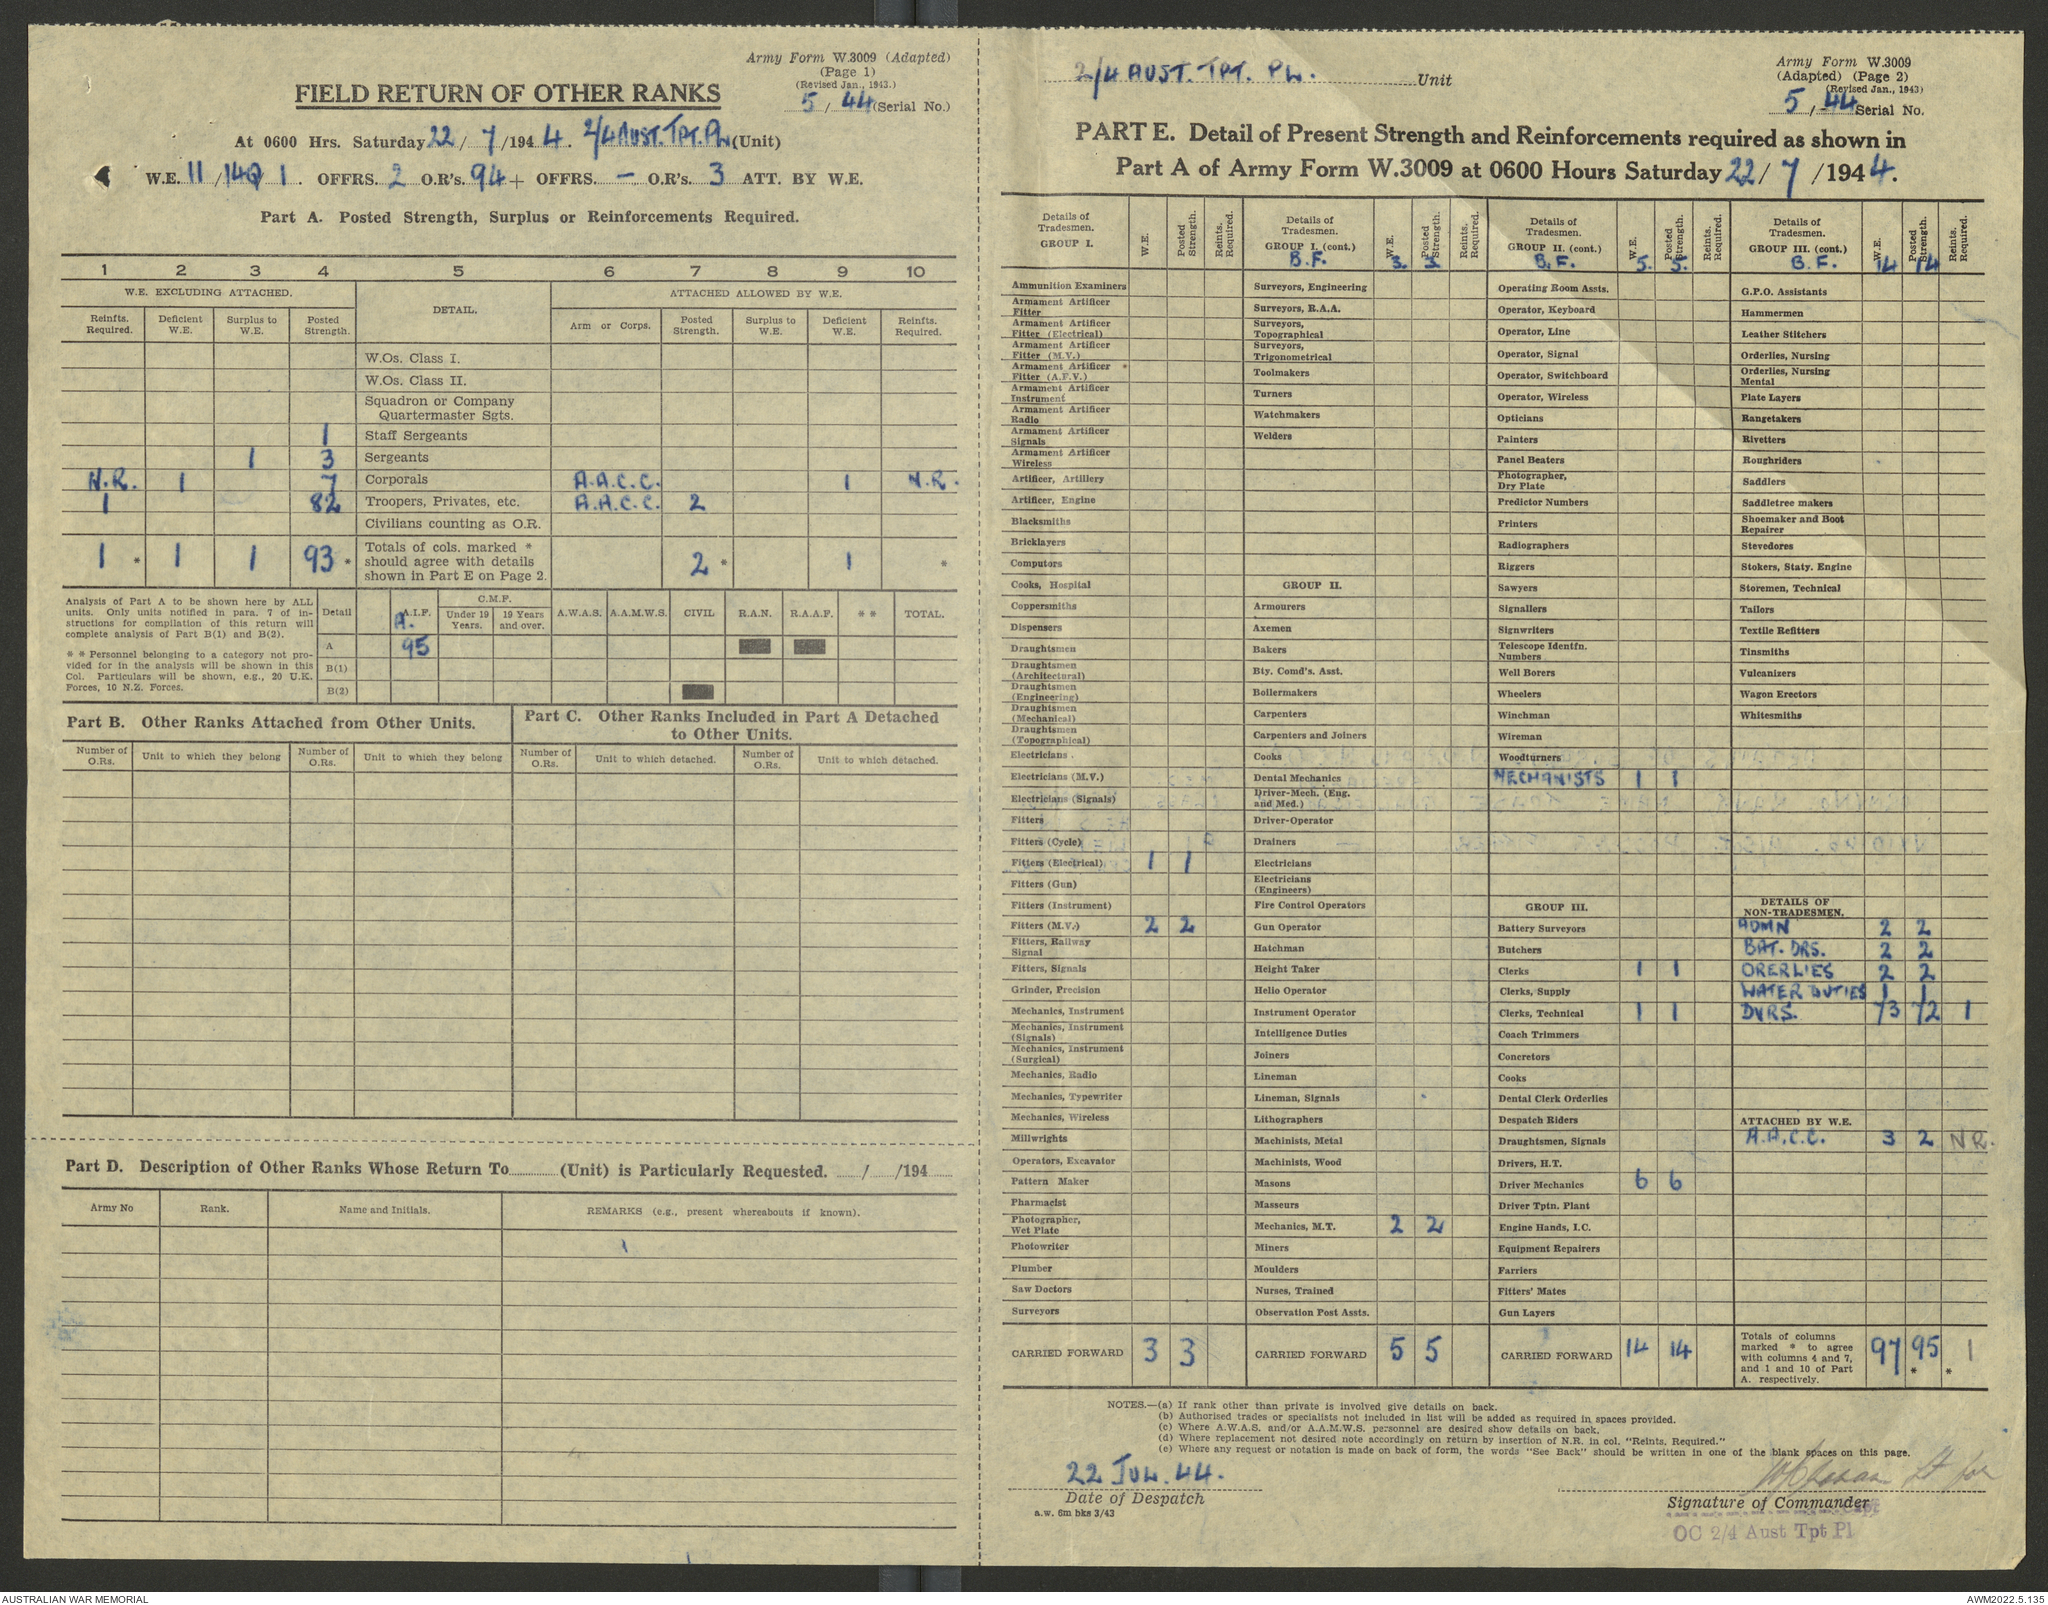 Army Form W.3009 (Adapted)
(Page 1)
(Revised Jan., 1943.)
5 / 44 (Serial No.)
FIELD RETURN OF OTHER RANKS
At 0600 Hrs. Saturday 22 / 7 /194 4. 2/4 AUST. TPT. PL (Unit)
OFFRS. 2 O.R's. 94 + OFFRS. — O.R's. 3 ATT. BY W.E.
Part A. Posted Strength, Surplus or Reinforcements Required.
1 2 3 4 5 6 7 8 9 10
W.E. EXCLUDING ATTACHED. DETAIL. ATTACHED ALLOWED BY W.E.
Reinfts. Required. Deficient W.E. Surplus to W.E. Posted Strength. Arm or Corps. Posted Strength. Surplus to W.E. Deficient W.E. Reinfts. Required.
W.Os. Class I.
W.Os. Class II.
Squadron or Company
Quartermaster Sgts.
1 Staff Sergeants
1 3 Sergeants
N.R. 1 7 Corporals A.A.C.C. 1 N.R.
1 82 Troopers, Privates, etc. A.A.C.C. 2
Civilians counting as O.R.
1 * 1 1 93 * Totals of cols. marked * should agree with details shown in Part E on Page 2. 2 * 1 *
Analysis of Part A to be shown here by ALL
units. Only units notified in para. 7 of in-
structions for compilation of this return will
complete analysis of Part B(1) and B(2).
* * Personnel belonging to a category not pro-
vided for in the analysis will be shown in this
Col. Particulars will be shown, e.g., 20 U.K.
Forces, 10 N.Z. Forces.
Detail A. A.I.F. C.M.F. Under 19 Years. 19 Years and over. A.W.A.S. A.A.M.W.S. CIVIL R.A.N. R.A.A.F. * * TOTAL.
A 95
B(1)
B(2)
Part B. Other Ranks Attached from Other Units.
Number of O.Rs. Unit to which they belong Number of O.Rs. Unit to which they belong
Part C. Other Ranks Included in Part A Detached
to Other Units.
Number of O.Rs. Unit to which detached. Number of O.Rs. Unit to which detached.
Part D. Description of Other Ranks Whose Return To (Unit) is Particularly Requested. / /194
Army No Rank. Name and Initials. REMARKS (e.g., present whereabouts if known).
2/4 AUST. TPT. PL. Unit
Army Form W.3009
(Adapted) (Page 2)
(Revised Jan., 1943)
5 / 44 Serial No.
PART E. Detail of Present Strength and Reinforcements required as shown in
Part A of Army Form W.3009 at 0600 Hours Saturday 22/ 7 /194 4.
Details of Tradesmen. GROUP I. W.E. Posted Strength. Reints. Required.
Ammunition Examiners
Armament Artificer Fitter
Armament Artificer Fitter (Electrical)
Armament Artificer Fitter (M.V.)
Armament Artificer Fitter (A.F.V.)
Armament Artificer Instrument
Armament Artificer Radio
Armament Artificer Signals
Armament Artificer Wireless
Artificer, Artillery
Artificer, Engine
Blacksmiths
Bricklayers
Computors
Cooks, Hospital
Coppersmiths
Dispensers
Draughtsmen
Draughtsmen (Architectural)
Draughtsmen (Engineering)
Draughtsmen (Mechanical)
Draughtsmen (Topographical)
Electricians
Electricians (M.V.)
Electricians (Signals)
Fitters
Fitters (Cycle)
Fitters (Electrical) 1 1
Fitters (Gun)
Fitters (Instrument)
Fitters (M.V.) 2 2
Fitters, Railway Signal
Fitters, Signals
Grinder, Precision
Mechanics, Instrument
Mechanics, Instrument (Signals)
Mechanics, Instrument (Surgical)
Mechanics, Radio
Mechanics, Typewriter
Mechanics, Wireless
Millwrights
Operators, Excavator
Pattern Maker
Pharmacist
Photographer, Wet Plate
Photowriter
Plumber
Saw Doctors
Surveyors
CARRIED FORWARD 3 3
Details of Tradesmen. GROUP I. (cont.) W.E. Posted Strength. Reints. Required.
B.F. 3. 3.
Surveyors, Engineering
Surveyors, R.A.A.
Surveyors, Topographical
Surveyors, Trigonometrical
Toolmakers
Turners
Watchmakers
Welders
GROUP II.
Armourers
Axemen
Bakers
Bty. Comd's. Asst.
Boilermakers
Carpenters
Carpenters and Joiners
Cooks
Dental Mechanics
Driver-Mech. (Eng. and Med.)
Driver-Operator
Drainers
Electricians
Electricians (Engineers)
Fire Control Operators
Gun Operator
Hatchman
Height Taker
Helio Operator
Instrument Operator
Intelligence Duties
Joiners
Lineman
Lineman, Signals
Lithographers
Machinists, Metal
Machinists, Wood
Masons
Masseurs
Mechanics, M.T. 2 2
Miners
Moulders
Nurses, Trained
Observation Post Assts.
CARRIED FORWARD 5 5
Details of Tradesmen. GROUP II. (cont.) W.E. Posted Strength. Reints. Required.
B.F. 5. 5.
Operating Room Assts.
Operator, Keyboard
Operator, Line
Operator, Signal
Operator, Switchboard
Operator, Wireless
Opticians
Painters
Panel Beaters
Photographer, Dry Plate
Predictor Numbers
Printers
Radiographers
Riggers
Sawyers
Signallers
Signwriters
Telescope Identfn. Numbers
Well Borers
Wheelers
Winchman
Wireman
Woodturners
MECHANISTS 1 1
GROUP III.
Battery Surveyors
Butchers
Clerks 1 1
Clerks, Supply
Clerks, Technical 1 1
Coach Trimmers
Concretors
Cooks
Dental Clerk Orderlies
Despatch Riders
Draughtsmen, Signals
Drivers, H.T.
Driver Mechanics 6 6
Driver Tptn. Plant
Engine Hands, I.C.
Equipment Repairers
Farriers
Fitters' Mates
Gun Layers
CARRIED FORWARD 14 14
Details of Tradesmen. GROUP III. (cont.) W.E. Posted Strength. Reints. Required.
B.F. 14 14
G.P.O. Assistants
Hammermen
Leather Stitchers
Orderlies, Nursing
Orderlies, Nursing Mental
Plate Layers
Rangetakers
Rivetters
Roughriders
Saddlers
Saddletree makers
Shoemaker and Boot Repairer
Stevedores
Stokers, Staty. Engine
Storemen, Technical
Tailors
Textile Refitters
Tinsmiths
Vulcanizers
Wagon Erectors
Whitesmiths
DETAILS OF NON-TRADESMEN.
ADMN 2 2
BAT. DRS. 2 2
ORERLIES 2 2
WATER DUTIES 1 1
DVRS. 73 72 1
ATTACHED BY W.E.
A.A.C.C. 3 2 N.R.
Totals of columns marked * to agree with columns 4 and 7, and 1 and 10 of Part A. respectively. 97 95 * * 1
NOTES.—(a) If rank other than private is involved give details on back.
(b) Authorised trades or specialists not included in list will be added as required in spaces provided.
(c) Where A.W.A.S. and/or A.A.M.W.S. personnel are desired show details on back.
(d) Where replacement not desired note accordingly on return by insertion of N.R. in col. "Reints. Required."
(e) Where any request or notation is made on back of form, the words "See Back" should be written in one of the blank spaces on this page.
22 JUL. 44.
Date of Despatch
a.w. 6m bks 3/43
Lt for
Signature of Commander
Capt
OC 2/4 Aust Tpt Pl
AUSTRALIAN WAR MEMORIAL
AWM2022.5.135